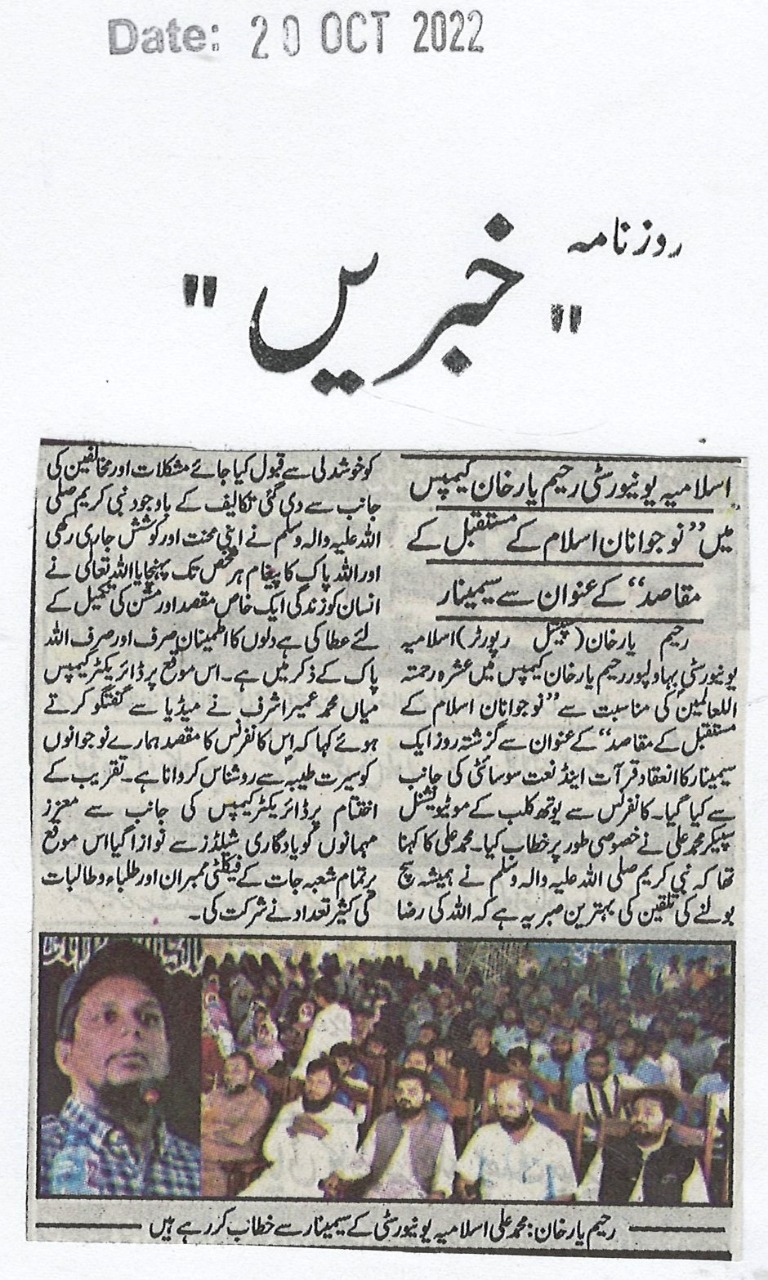 Date: 20 OCT 2022
روزنامہ
"خبریں"
اسلامیہ یونیورسٹی رحیم یار خان کیمپس
میں ”نوجوانان اسلام کے مستقبل کے
مقاصد“ کے عنوان سے سیمینار
رحیم یارخان (سپیشل رپورٹر) اسلامیہ
یونیورسٹی بہاولپور رحیم یار خان کیمپس میں عشرہ رحمتہ
اللعالمینؐ کی مناسبت سے ”نوجوانان اسلام کے
مستقبل کے مقاصد“ کے عنوان سے گزشتہ روز ایک
سیمینار کا انعقاد قرآت اینڈ نعت سوسائٹی کی جانب
سے کیا گیا۔ کانفرنس سے یوتھ کلب کے موٹیویشنل
سپیکر محمد علی نے خصوصی طور پر خطاب کیا۔ محمد علی کا کہنا
تھا کہ نبی کریم صلی اللہ علیہ والہ وسلم نے ہمیشہ سچ
بولنے کی تلقین کی بہترین صبر یہ ہے کہ اللہ کی رضا
کو خوشدلی سے قبول کیا جائے مشکلات اور مخالفین کی
جانب سے دی گئی تکالیف کے باوجود نبی کریم صلی
اللہ علیہ والہ وسلم نے اپنی محنت اور کوشش جاری رکھی
اور اللہ پاک کا پیغام ہر شخص تک پہنچایا اللہ تعالی نے
انسان کو زندگی ایک خاص مقصد اور مشن کی تکمیل کے
لئے عطا کی ہے دلوں کا اطمینان صرف اور صرف اللہ
پاک کے ذکر میں ہے۔ اس موقع پر ڈائریکٹر کیمپس
میاں محمد عمیر اشرف نے میڈیا سے گفتگو کرتے
ہوئے کہا کہ اس کانفرنس کا مقصد ہمارے نوجوانوں
کو سیرت طیبہ سے روشناس کروانا ہے۔ تقریب کے
اختتام پر ڈائریکٹر کیمپس کی جانب سے معزز
مہمانوں کو یادگاری شیلڈز سے نوازا گیا اس موقع
پر تمام شعبہ جات کے فیکلٹی ممبران اور طلباء و طالبات
کی کثیر تعداد نے شرکت کی۔
رحیم یار خان: محمد علی اسلامیہ یونیورسٹی کے سیمینار سے خطاب کر رہے ہیں